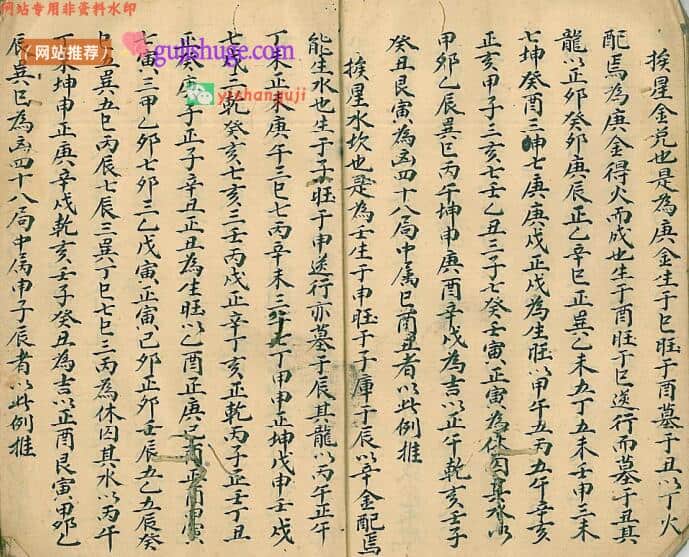 网站专用非资料水印
（网站推荐）
gujishuge.com
yishanguji
挨星金兑也是為庚金生于巳旺于酉墓于丑以丁火
配焉為庚金得火而成也生于酉旺于巳逆行而墓于丑其
龍以正卯癸卯庚辰正乙辛巳正巽乙未五丁五未壬申三未
七坤癸酉三坤七庚庚戌正戌為生旺以甲午五丙五午辛亥
正亥甲子三亥七壬乙丑三子七癸壬寅正寅為休囚其水以
甲卯乙辰巽巳丙午坤申庚酉辛戌為吉以正午乾亥壬子
癸丑艮寅為凶四十八局中属巳酉丑者以此例推
挨星水坎也是為壬生于申旺于子庫于辰以辛金配焉
能生水也生于子旺于申逆行亦墓于辰其龍以丙午正午
丁未正未庚午三巳七丙辛未三午七丁甲申正坤戊申壬戌
七戌五乾癸亥七亥三壬丙戌正辛丁亥正乾丙子正壬丁丑
正癸庚子正子辛丑正丑為生旺以乙酉正庚己酉正酉庚寅
七寅三甲乙卯七卯三乙戊寅正寅己卯正卯壬辰五乙五辰癸
巳五巽五巳丙辰七辰三巽丁巳七巳三丙為休囚其水以丙午
丁未坤申正庚辛戌乾亥壬子癸丑為吉以正酉艮寅甲卯乙
辰巽巳為凶四十八局中属申子辰者以此例推